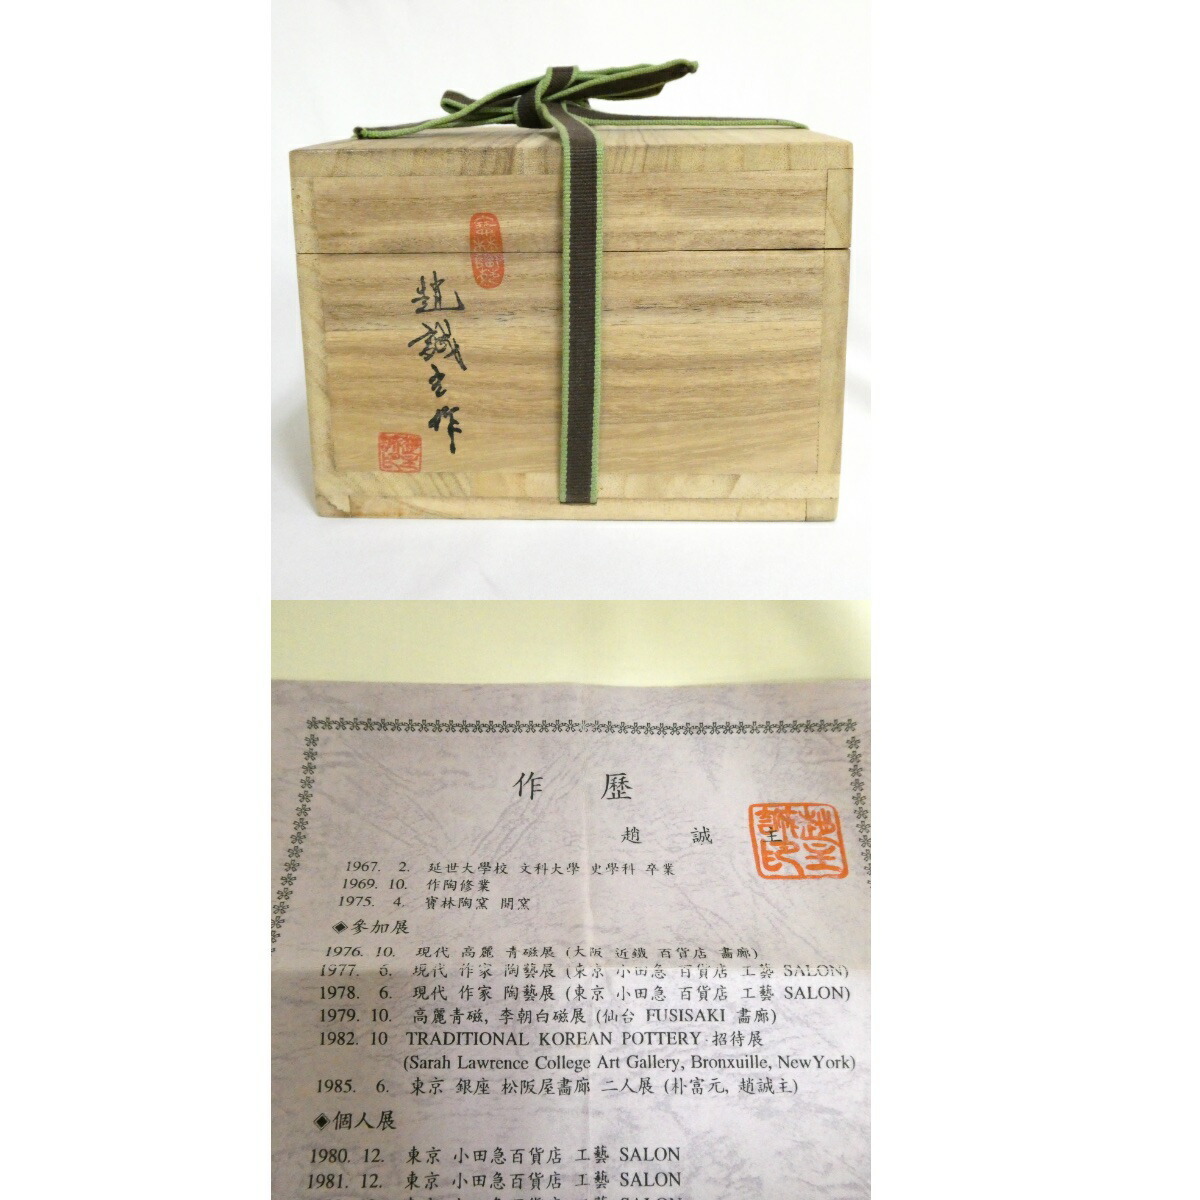 趙誠主作
作 歷
趙 誠 主
1967. 2. 延世大學校 文科大學 史學科 卒業
1969. 10. 作陶修業
1975. 4. 寶林陶窯 開窯
◈參加展
1976. 10. 現代 高麗 青磁展 (大阪 近鐵 百貨店 畵廊)
1977. 6. 現代 作家 陶藝展 (東京 小田急 百貨店 工藝 SALON)
1978. 6. 現代 作家 陶藝展 (東京 小田急 百貨店 工藝 SALON)
1979. 10. 高麗青磁, 李朝白磁展 (仙台 FUSISAKI 畵廊)
1982. 10 TRADITIONAL KOREAN POTTERY 招待展
(Sarah Lawrence College Art Gallery, Bronxuille, NewYork)
1985. 6. 東京 銀座 松阪屋畵廊 二人展 (朴富元, 趙誠主)
◈個人展
1980. 12. 東京 小田急百貨店 工藝 SALON
1981. 12. 東京 小田急百貨店 工藝 SALON